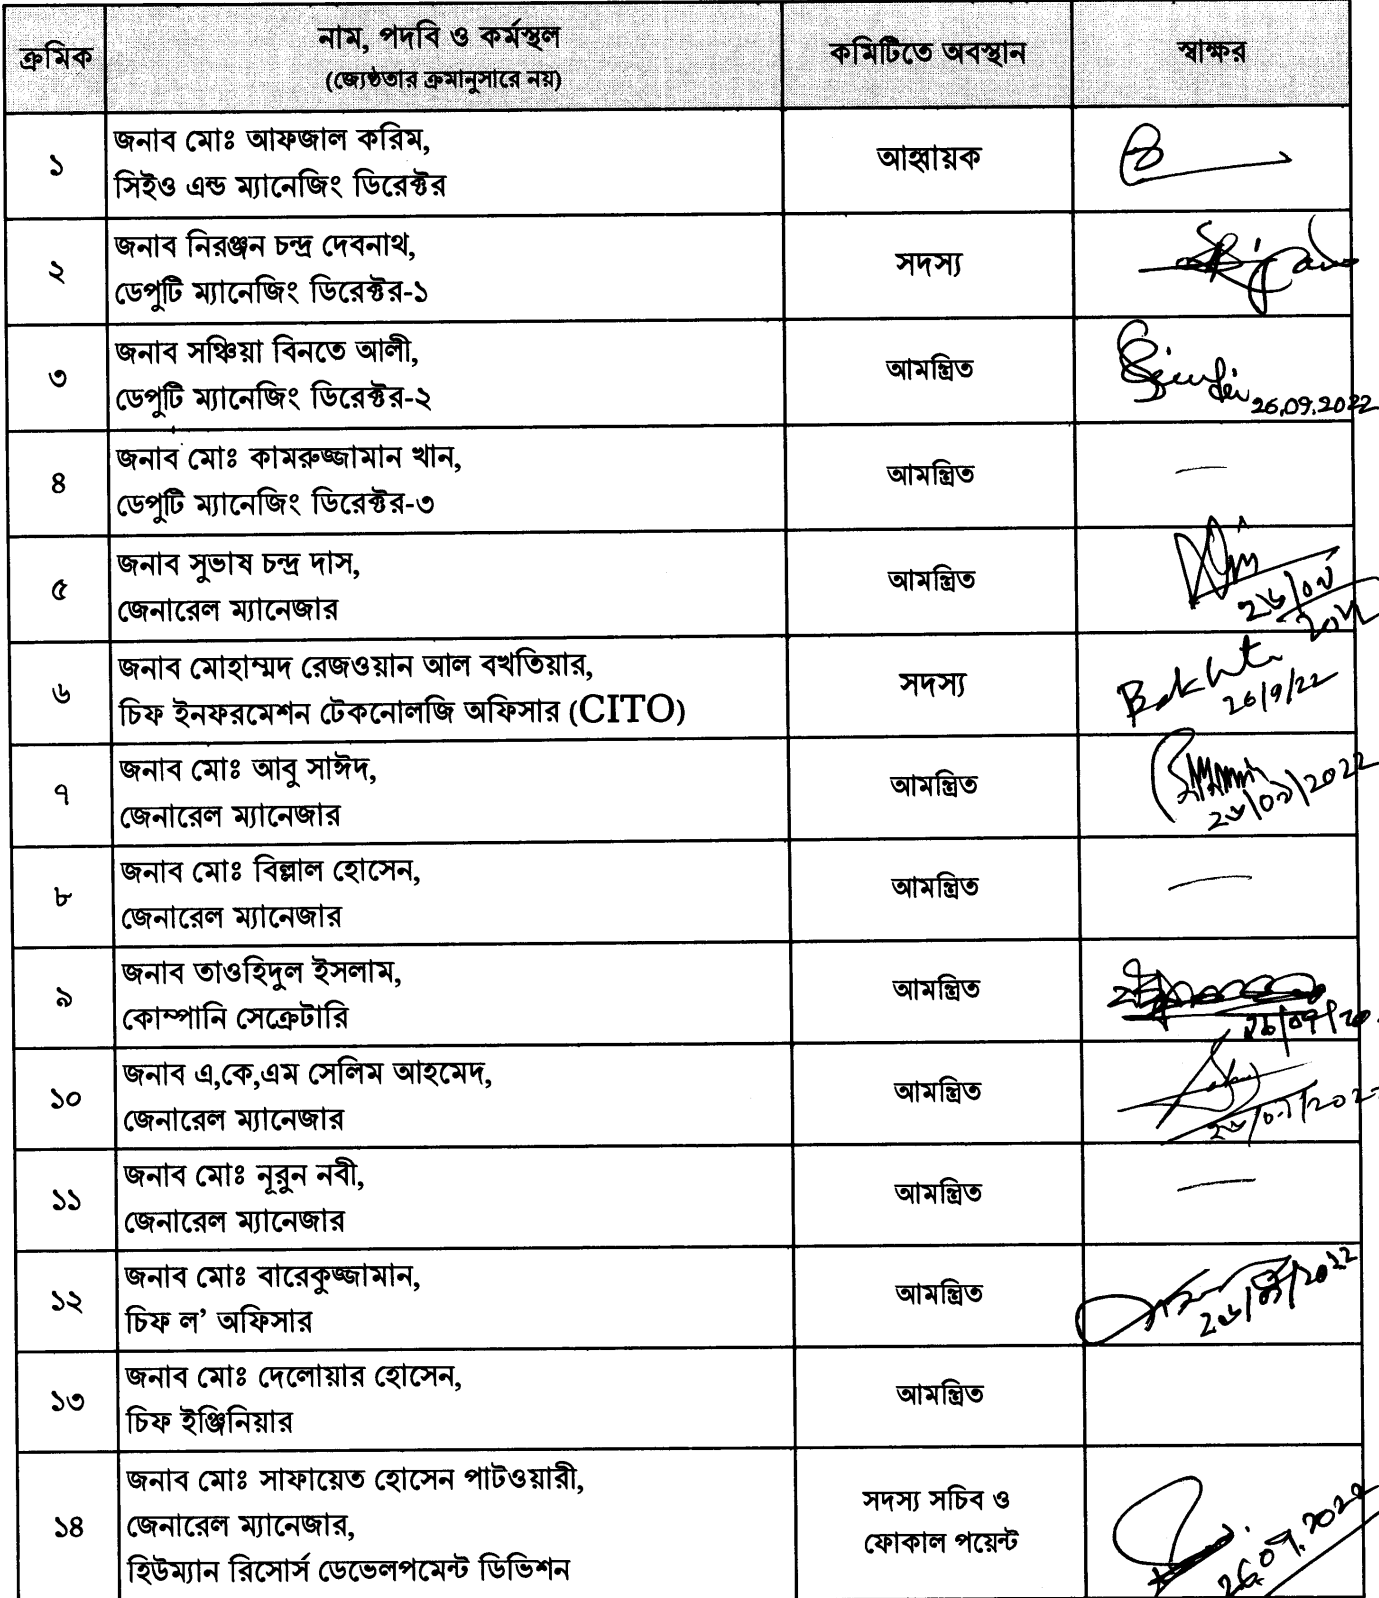 ক্রমিক
নাম, পদবি ও কর্মস্থল
(জ্যেষ্ঠতার ক্রমানুসারে নয়)
কমিটিতে অবস্থান
স্বাক্ষর
১
জনাব মোঃ আফজাল করিম,
সিইও এন্ড ম্যানেজিং ডিরেক্টর
আহ্বায়ক
২
জনাব নিরঞ্জন চন্দ্র দেবনাথ,
ডেপুটি ম্যানেজিং ডিরেক্টর-১
সদস্য
৩
জনাব সঞ্চিয়া বিনতে আলী,
ডেপুটি ম্যানেজিং ডিরেক্টর-২
আমন্ত্রিত
26.09.2022
৪
জনাব মোঃ কামরুজ্জামান খান,
ডেপুটি ম্যানেজিং ডিরেক্টর-৩
আমন্ত্রিত
—
৫
জনাব সুভাষ চন্দ্র দাস,
জেনারেল ম্যানেজার
আমন্ত্রিত
৬
জনাব মোহাম্মদ রেজওয়ান আল বখতিয়ার,
চিফ ইনফরমেশন টেকনোলজি অফিসার (CITO)
সদস্য
26/9/22
৭
জনাব মোঃ আবু সাঈদ,
জেনারেল ম্যানেজার
আমন্ত্রিত
২৬/০৯/2022
৮
জনাব মোঃ বিল্লাল হোসেন,
জেনারেল ম্যানেজার
আমন্ত্রিত
—
৯
জনাব তাওহিদুল ইসলাম,
কোম্পানি সেক্রেটারি
আমন্ত্রিত
১০
জনাব এ,কে,এম সেলিম আহমেদ,
জেনারেল ম্যানেজার
আমন্ত্রিত
১১
জনাব মোঃ নূরুন নবী,
জেনারেল ম্যানেজার
আমন্ত্রিত
—
১২
জনাব মোঃ বারেকুজ্জামান,
চিফ ল’ অফিসার
আমন্ত্রিত
১৩
জনাব মোঃ দেলোয়ার হোসেন,
চিফ ইঞ্জিনিয়ার
আমন্ত্রিত
১৪
জনাব মোঃ সাফায়েত হোসেন পাটওয়ারী,
জেনারেল ম্যানেজার,
হিউম্যান রিসোর্স ডেভেলপমেন্ট ডিভিশন
সদস্য সচিব ও
ফোকাল পয়েন্ট
26.09.2022